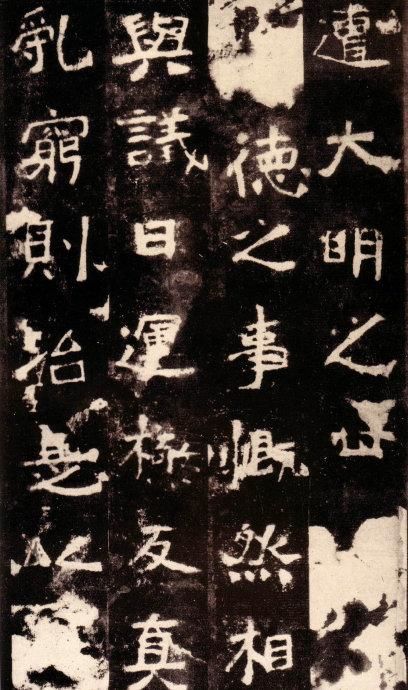 遭大明之世
德之事慨然相
與議曰運極反真
亂窮則治無以